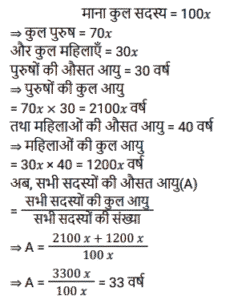 माना कुल सदस्य = 100x
⇒ कुल पुरुष = 70x
और कुल महिलाएँ = 30x
पुरुषों की औसत आयु = 30 वर्ष
⇒ पुरुषों की कुल आयु
= 70x × 30 = 2100x वर्ष
तथा महिलाओं की औसत आयु = 40 वर्ष
⇒ महिलाओं की कुल आयु
= 30x × 40 = 1200x वर्ष
अब, सभी सदस्यों की औसत आयु(A)
= सभी सदस्यों की कुल आयु / सभी सदस्यों की संख्या
⇒ A = 2100 x + 1200 x / 100 x
⇒ A = 3300 x / 100 x = 33 वर्ष